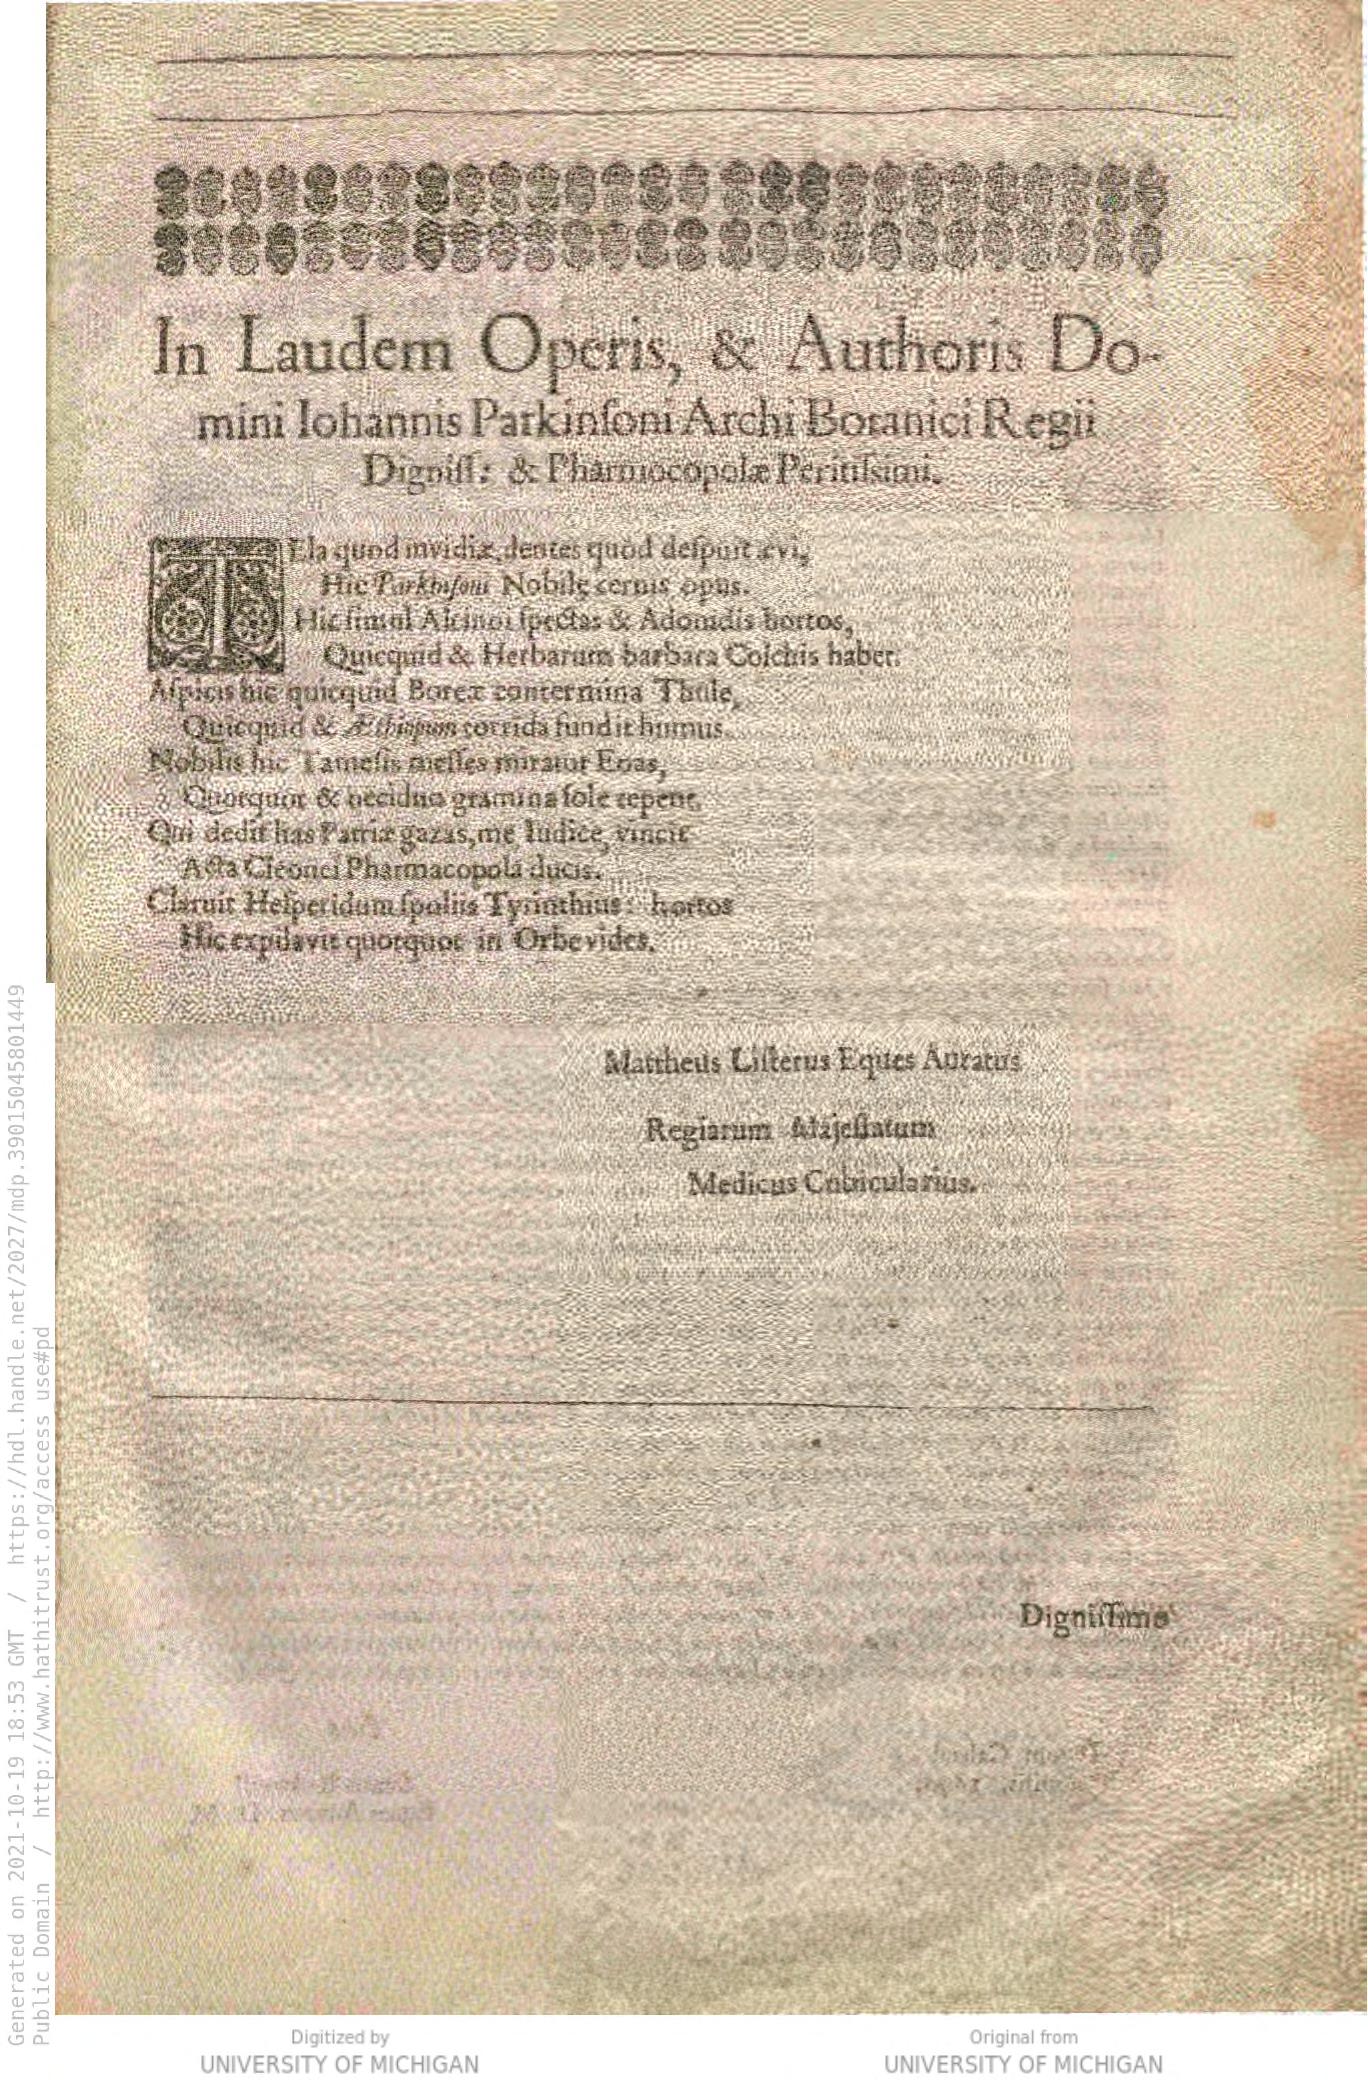 In Laudem Operis, & Authoris Do-
mini Iohannis Parkinſoni Archi Botanici Regii
Digniſſ: & Pharmocopolæ Peritiſsimi.
TEla quod invidiæ, dentes quod deſpuit ævi,
Hic Parkinſoni Nobile cernis opus.
Hic ſimul Alcinoi ſpectas & Adonidis hortos,
Quicquid & Herbarum barbara Colchis habet.
Aſpicis hic quicquid Boreæ contermina Thule,
Quicquid & Æthiopum torrida fundit humus.
Nobilis hic Tameſis meſſes miratur Eoas,
Quotquot & occiduo gramina ſole tepent,
Qui dedit has Patriæ gazas, me Iudice, vincit
Acta Cleonei Pharmacopola ducis.
Claruit Heſperidum ſpoliis Tyrinthius: hortos
Hic expilavit quotquot in Orbe vides.
Mattheus Liſterus Eques Auratus
Regiarum Majeſtatum
Medicus Cubicularius.
Digniſſimo
Generated on 2021-10-19 18:53 GMT / https://hdl.handle.net/2027/mdp.39015045801449
Public Domain / http://www.hathitrust.org/access_use#pd
Digitized by
UNIVERSITY OF MICHIGAN
Original from
UNIVERSITY OF MICHIGAN